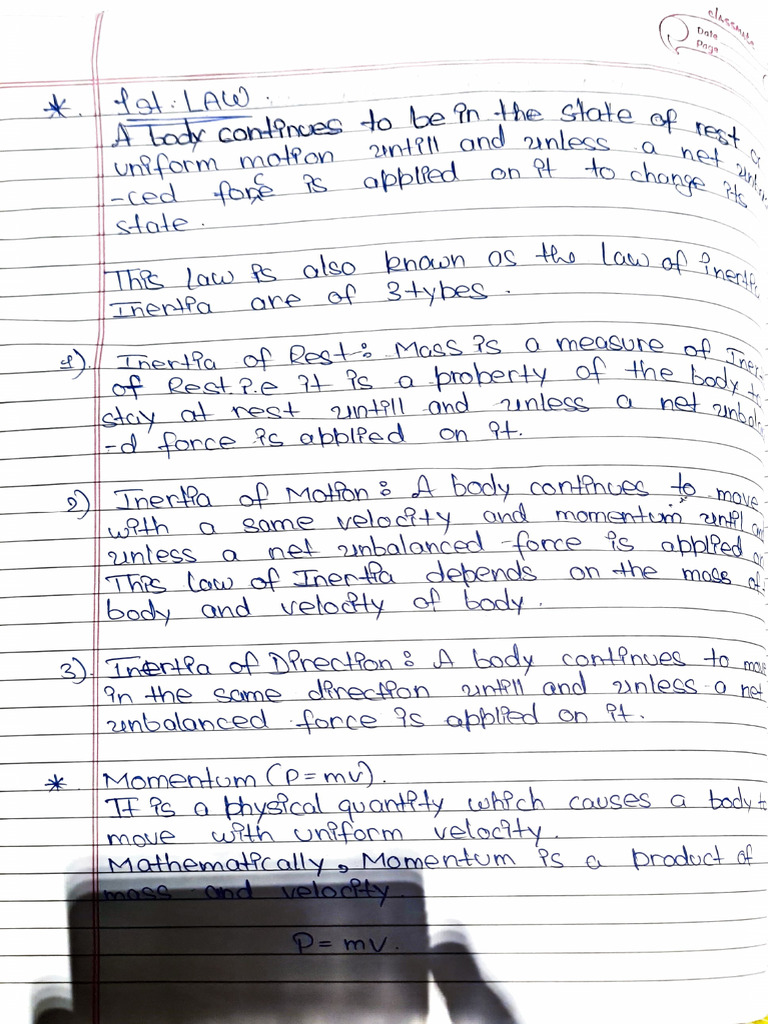 classmate
Date
Page
*. 1st. LAW.
A body continues to be in the state of rest
uniform motion untill and unless a net
-ced force is applied on it to change its
state.
This law is also known as the law of inertia
Inertia are of 3 tybes.
1). Inertia of Rest: Mass is a measure of Iner
of Rest. i.e it is a property of the body to
stay at rest untill and unless a net unbal
-d force is applied on it.
2) Inertia of Motion: A body continues to move
with a same velocity and momentum until
unless a net unbalanced force is applied on
This law of Inertia depends on the mass of
body and velocity of body.
3). Inertia of Direction: A body continues to move
in the same direction untill and unless a net
unbalanced force is applied on it.
* Momentum (P=mv).
It is a physical quantity which causes a body to
move with uniform velocity.
Mathematically, Momentum is a product of
mass and velocity.
P = mv.